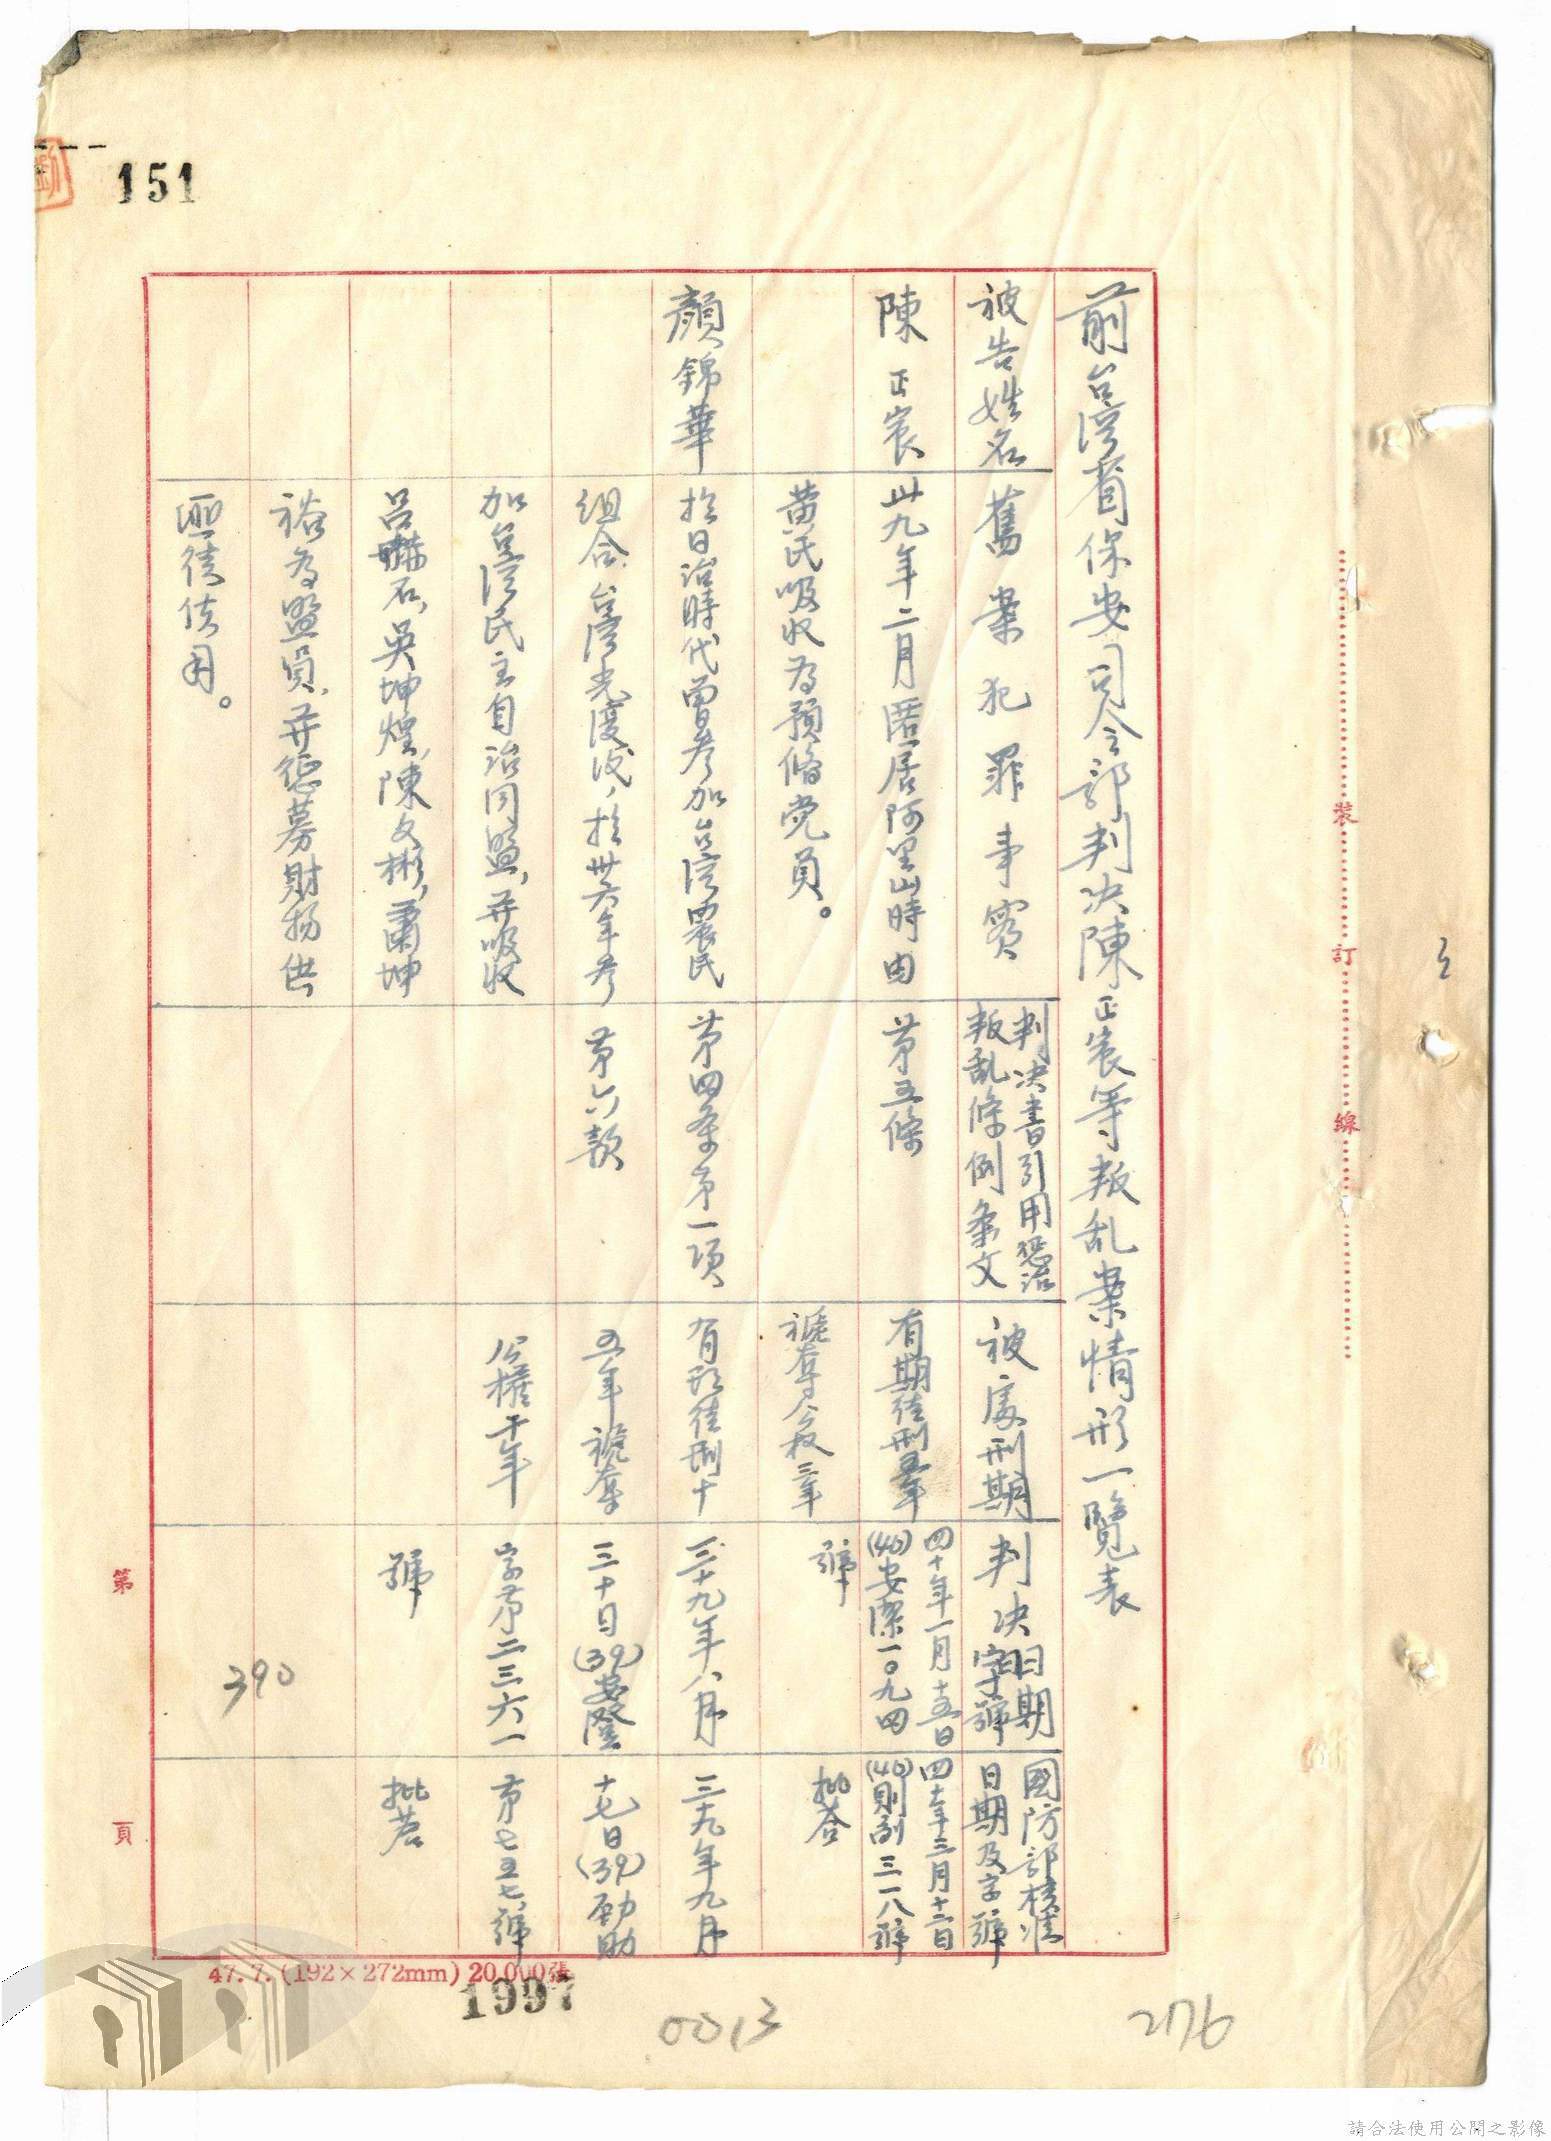 151
前台湾省保安司令部判决陳正宸等叛乱案情形一覽表
被告姓名
舊案犯罪事實
判决書引用惩治
叛乱條例条文
被處刑期
判决日期
字號
國防部核准
日期及字號
陳正宸
卅九年二月匿居阿里山時由
黄氏吸收为預俻党员。
第五條
有期徒刑五年
褫奪公权三年
四十年一月十五日
(40)安潔一〇九四
號
四十年三月十二日
(40)則副三一八號
批答
顏錦華
於日治時代曾參加台湾農民
组合,台湾光復後,於卅六年參
加台湾民主自治同盟,并吸收
呂赫石,吳坤煌,陳文彬,蕭坤
裕为盟員,并征募財物供
匪徒使用。
第四条第一項
第六款
有期徒刑十
五年褫奪
公權十年
三十九年八月
三十日(39)安澄
字第二三六一
號
三十九年九月
十七日(39)劲助
第七五七號
批答
390
裝
訂
線
第
頁
47.7.(192×272mm)20,000張
1997
0013
276
請合法使用公開之影像